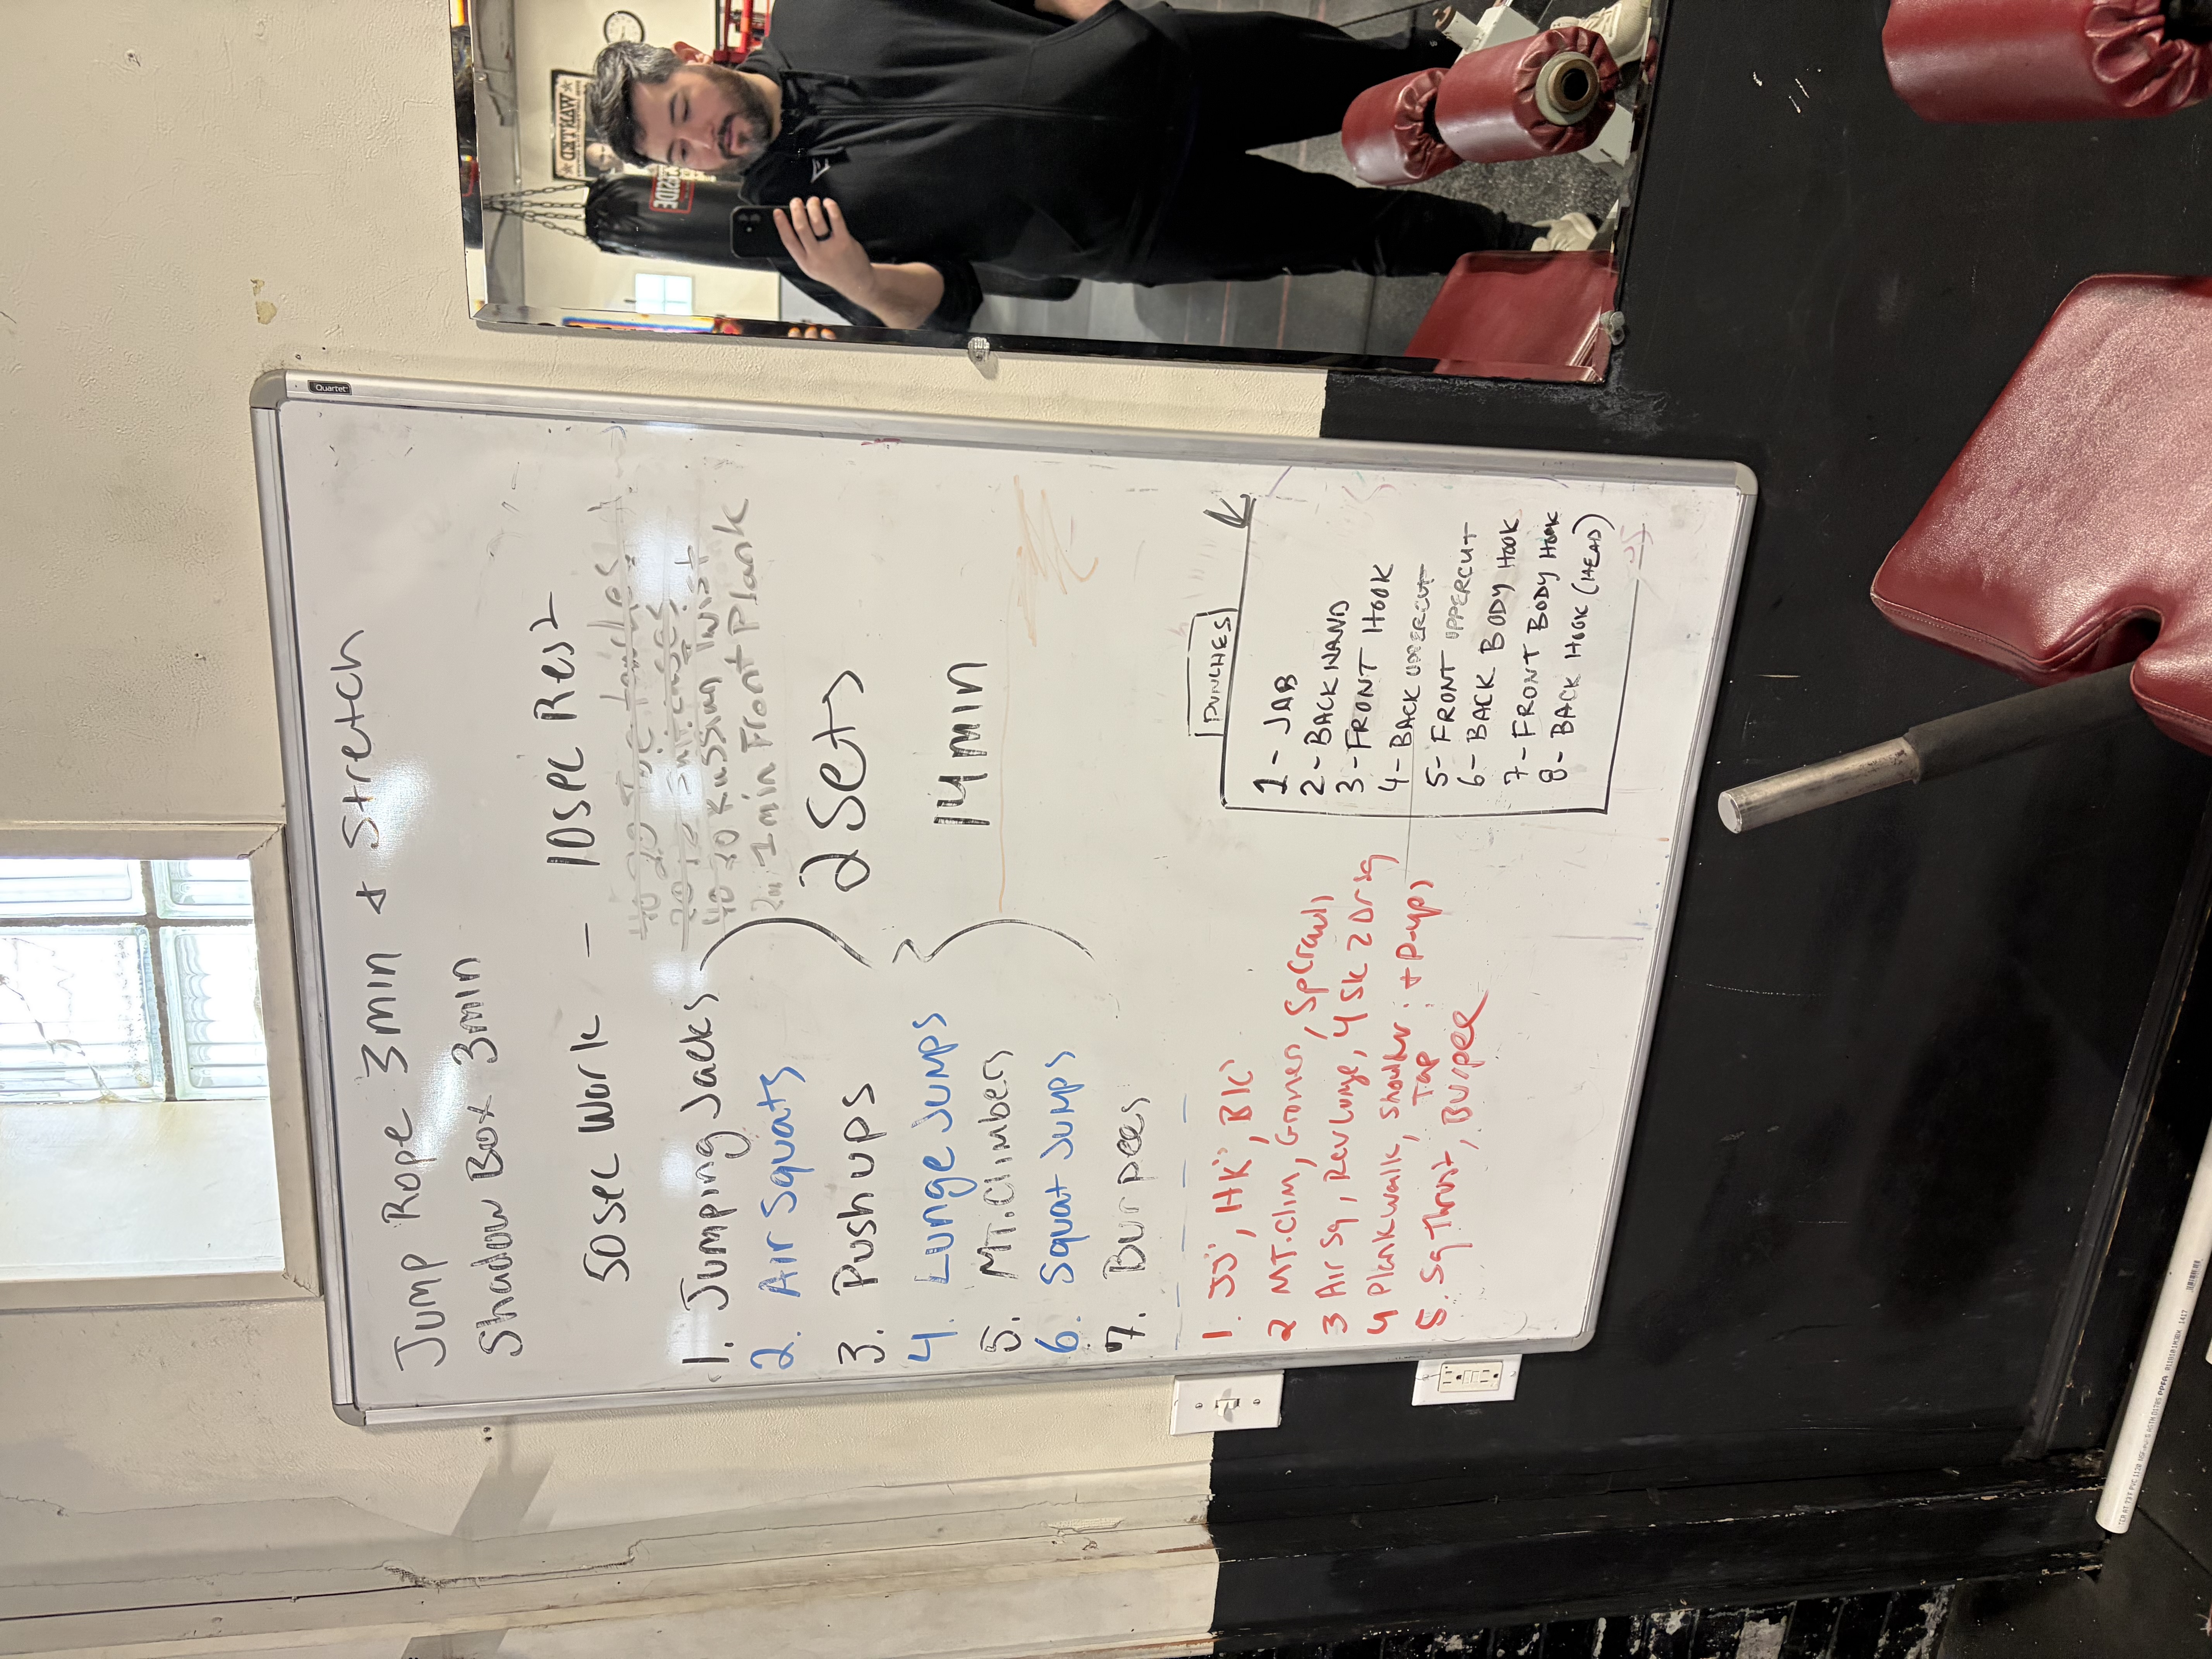 Quartet
Jump Rope 3min & Stretch
Shadow Box 3min
50sec Work - 10sec Rest
40 20 Toe touches
20 10 Suitcases
40 20 Russian Twist
1 min Front Plank
1. Jumping Jacks
2. Air Squats
3. Pushups
4. Lunge Jumps
5. MT. Climbers
6. Squat Jumps
7. Burpees
2 Sets
14min
1. JJ's, HK's, BK's
2 MT. Clim, Groiners, SpCrawls
3 Air Sq, Rev Lunge, 4 Sk 2 Drg
4 Plank walk, Shoulder Tap : + P-ups
5. Sq Thrust, Burpee
PUNCHES
1 - JAB
2 - BACK HAND
3 - FRONT HOOK
4 - BACK UPPERCUT
5 - FRONT UPPERCUT
6 - BACK BODY HOOK
7 - FRONT BODY HOOK
8 - BACK HOOK (HEAD)
WANTED